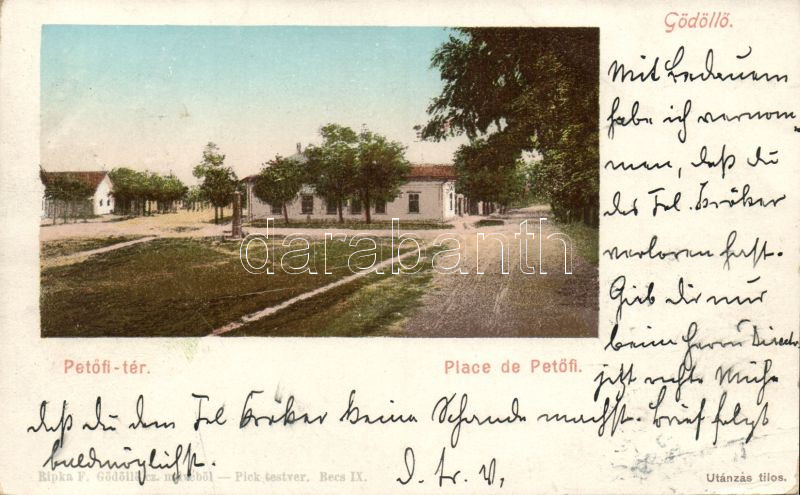 Gödöllő.
Mit bedauern
habe ich vernom-
men, daß du
das Frl. Kröker
verloren hast.
Gieb dir nur
beim Herrn Director
jetzt rechte Mühe
daß du dem Frl Kröker keine Schande machst. Brief folgt
baldmöglichst.
D. tr. V.
Petőfi-tér.
Place de Petőfi.
Ripka F. Gödöllő cz. művéből — Pick testver. Becs IX.
Utánzás tilos.
darabanth